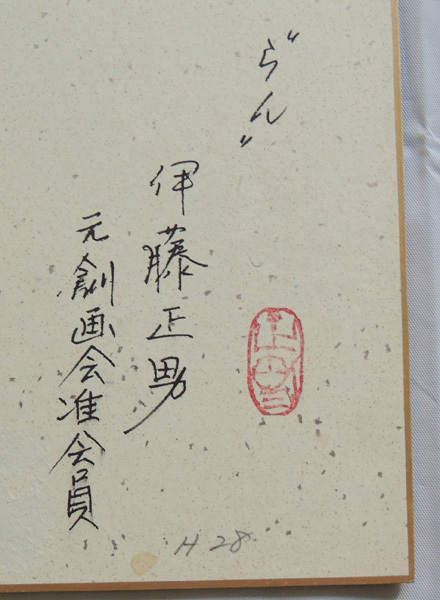 〝らん〟
伊藤正男
元創画会准会員
正男
H28